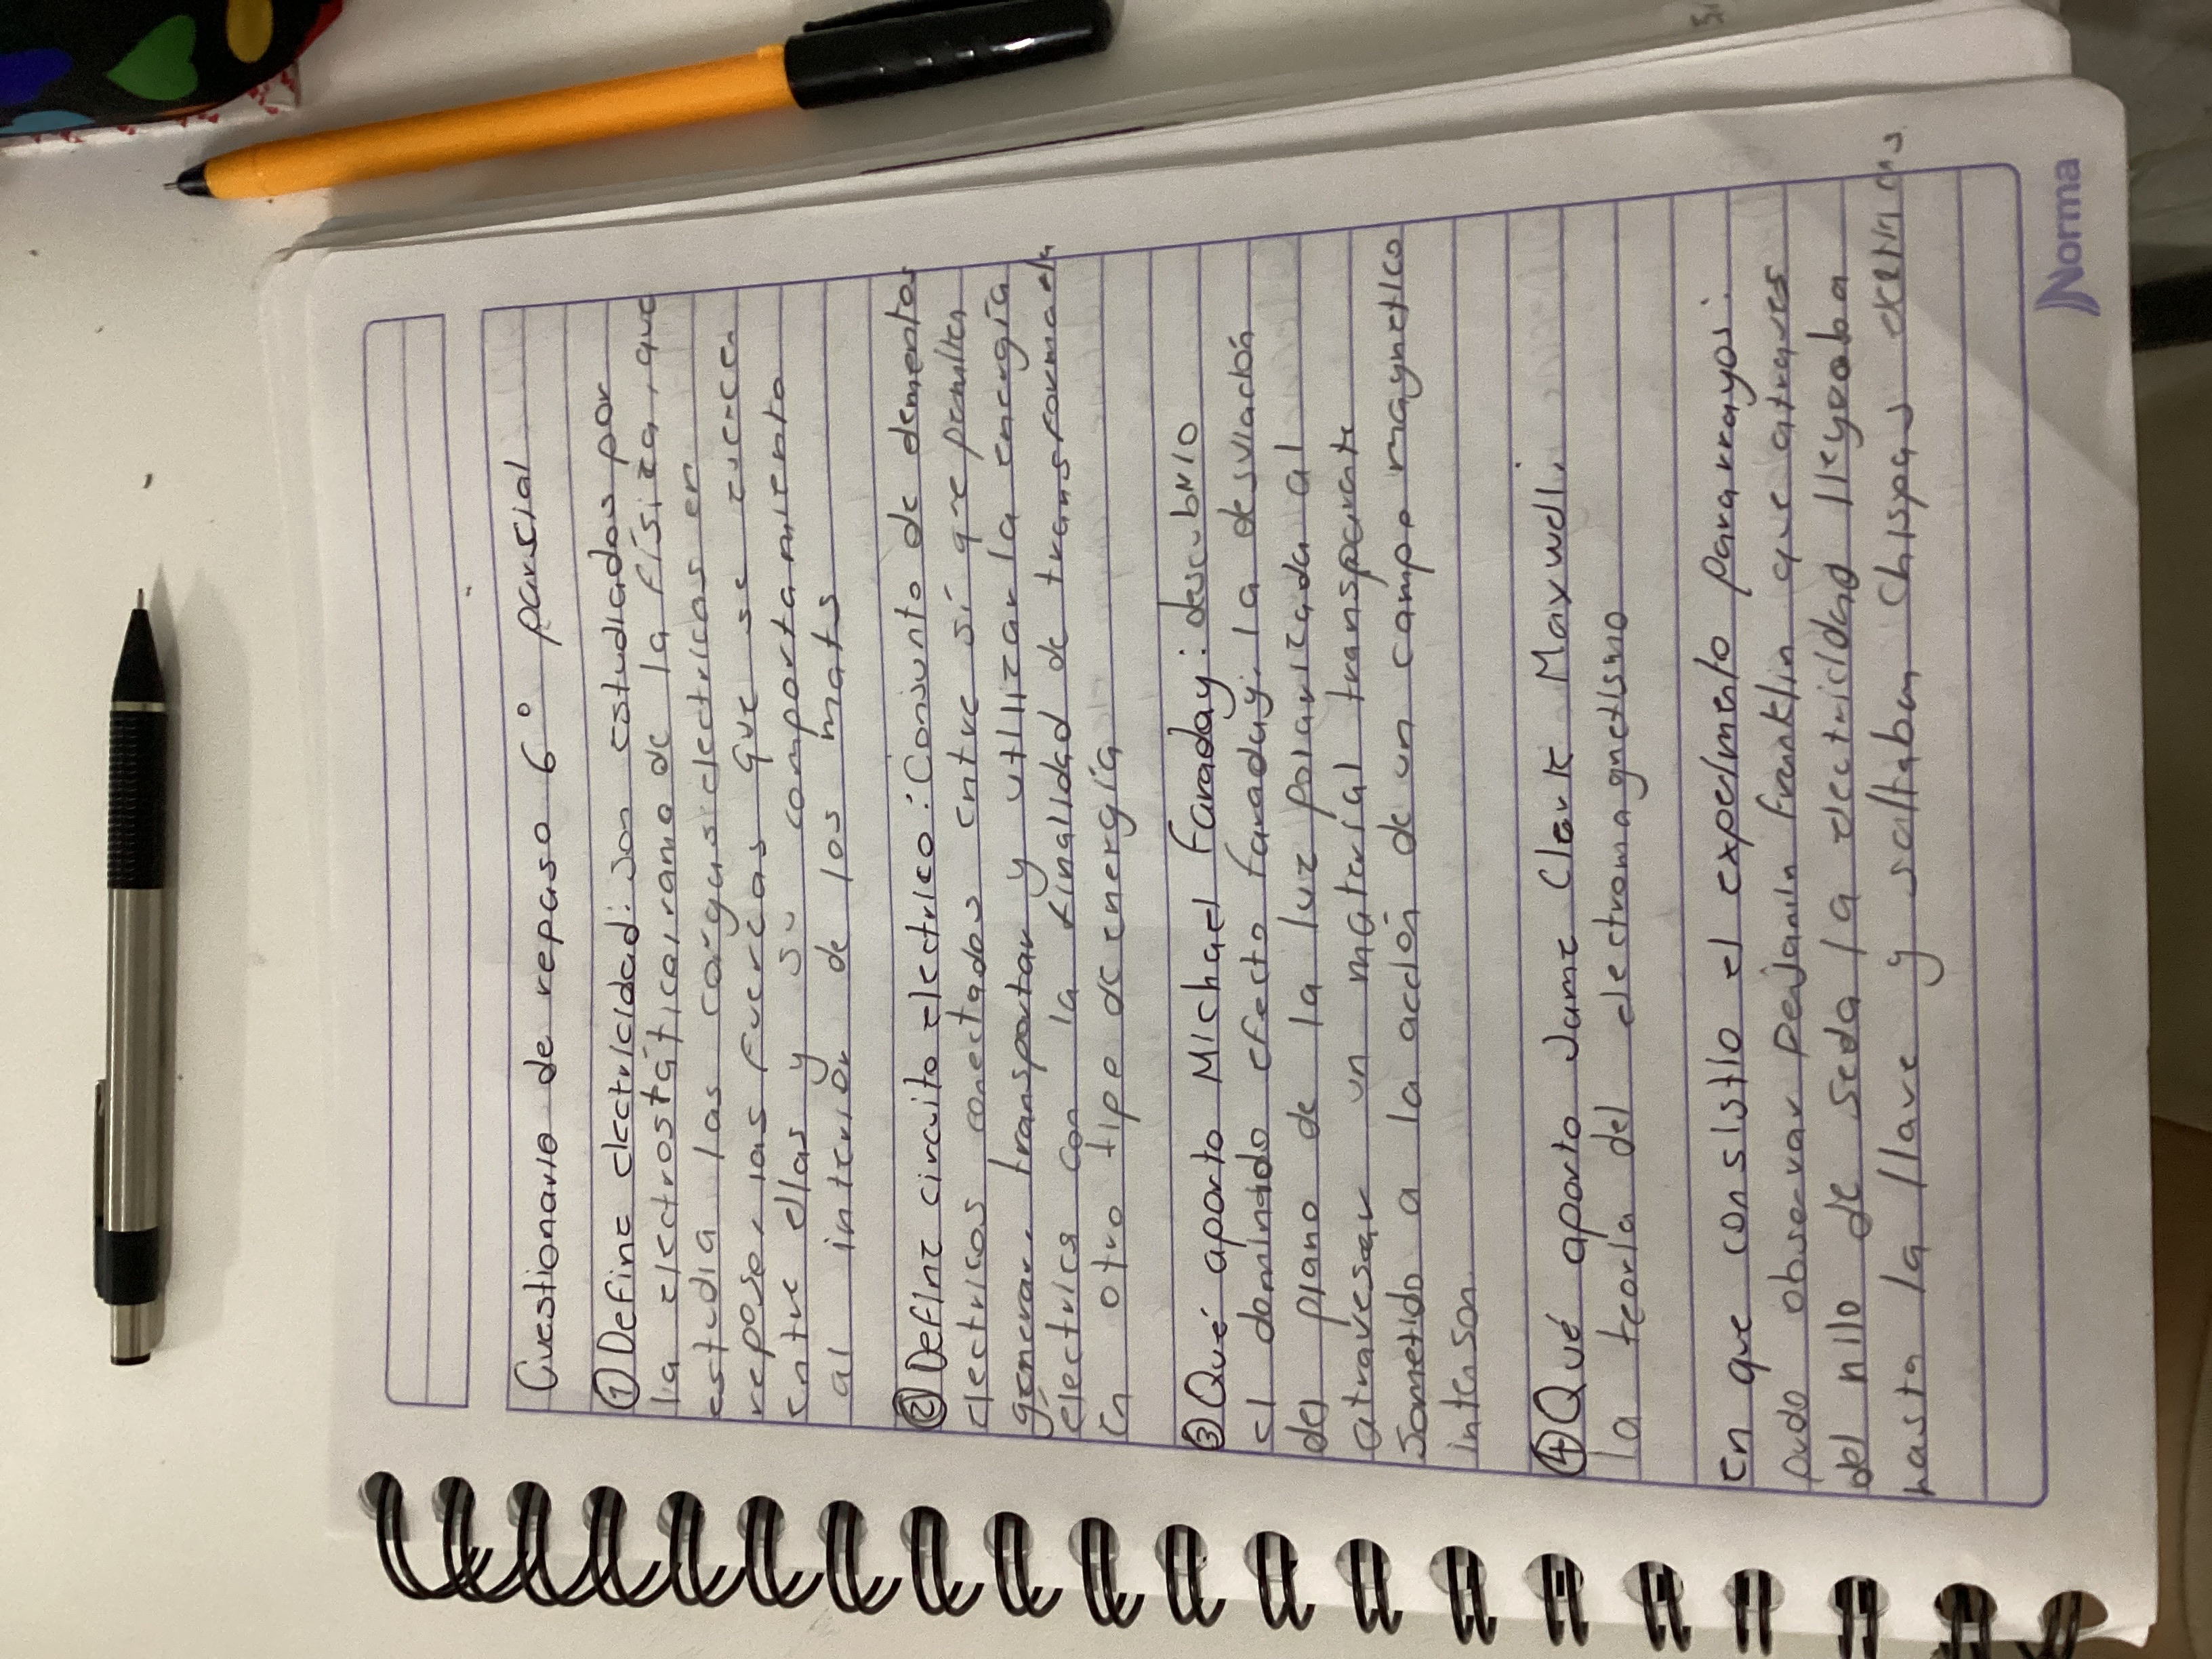 Cuestionario de repaso 6° parscial
① Define electricidad: son estudiados por
la electrostática, rama de la física, que
estudia las cargas electricas en
reposo, las fuercas que se euerce
entre ellas y su comportamiento
al interior de los mats
② Define circuito electrico: Conjunto de elementos
electricos conectados entre sí que permiten
generar, transportar y utilizar la energía
electrica con la finalidad de transformarla
en otro tipo de energía
③ Qué aporto Michael Faraday: descubrio
el dominado efecto faraday, la desviación
del plano de la luz polarizada al
atravesar un material transparente
Sometido a la acción de un campo magnetico
intenson
④ Qué aporto Jame Clerk Maxwell:
la teoria del electromagnetismo
En que consistio el experimento pararrayos:
pudo observar Penjamin franklin que atraves
del nilo de seda la electricidad llegaba
hasta la llave y saltaban chispas
Norma